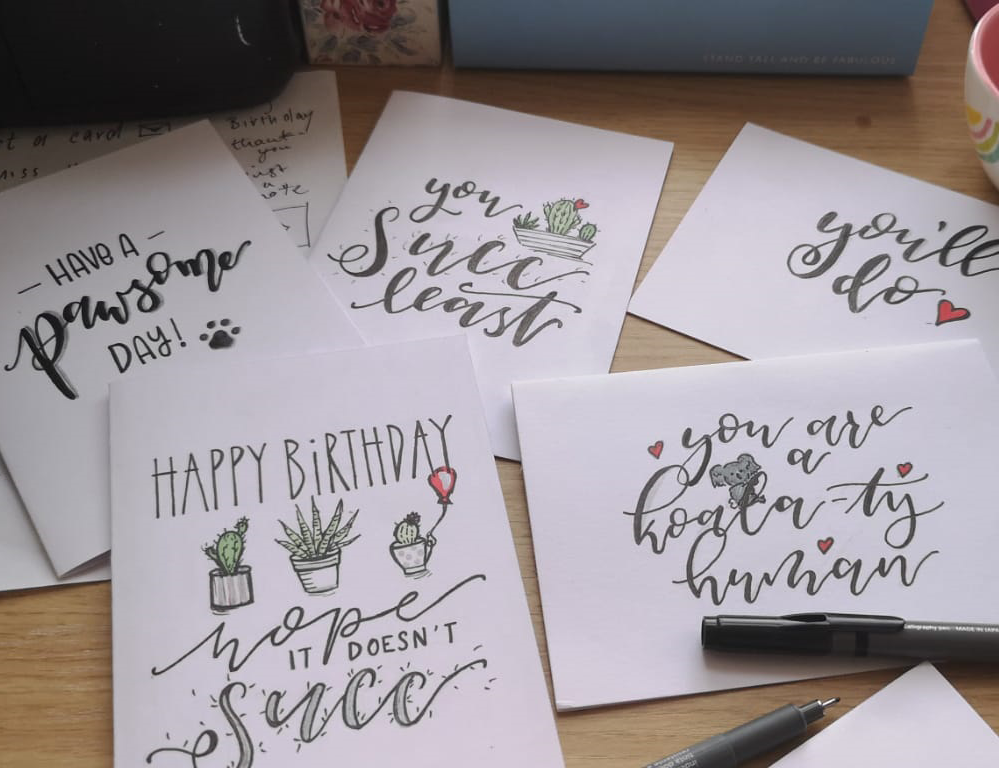 STAND TALL AND BE FABULOUS
a card
Birthday
thank
you
HAVE A
pawsome
DAY!
you
Succ
least
you'll
do
HAPPY BiRTHDAY
hope
IT DOESN'T
Succ
you are
a
koala-ty
human
MADE IN JAPAN